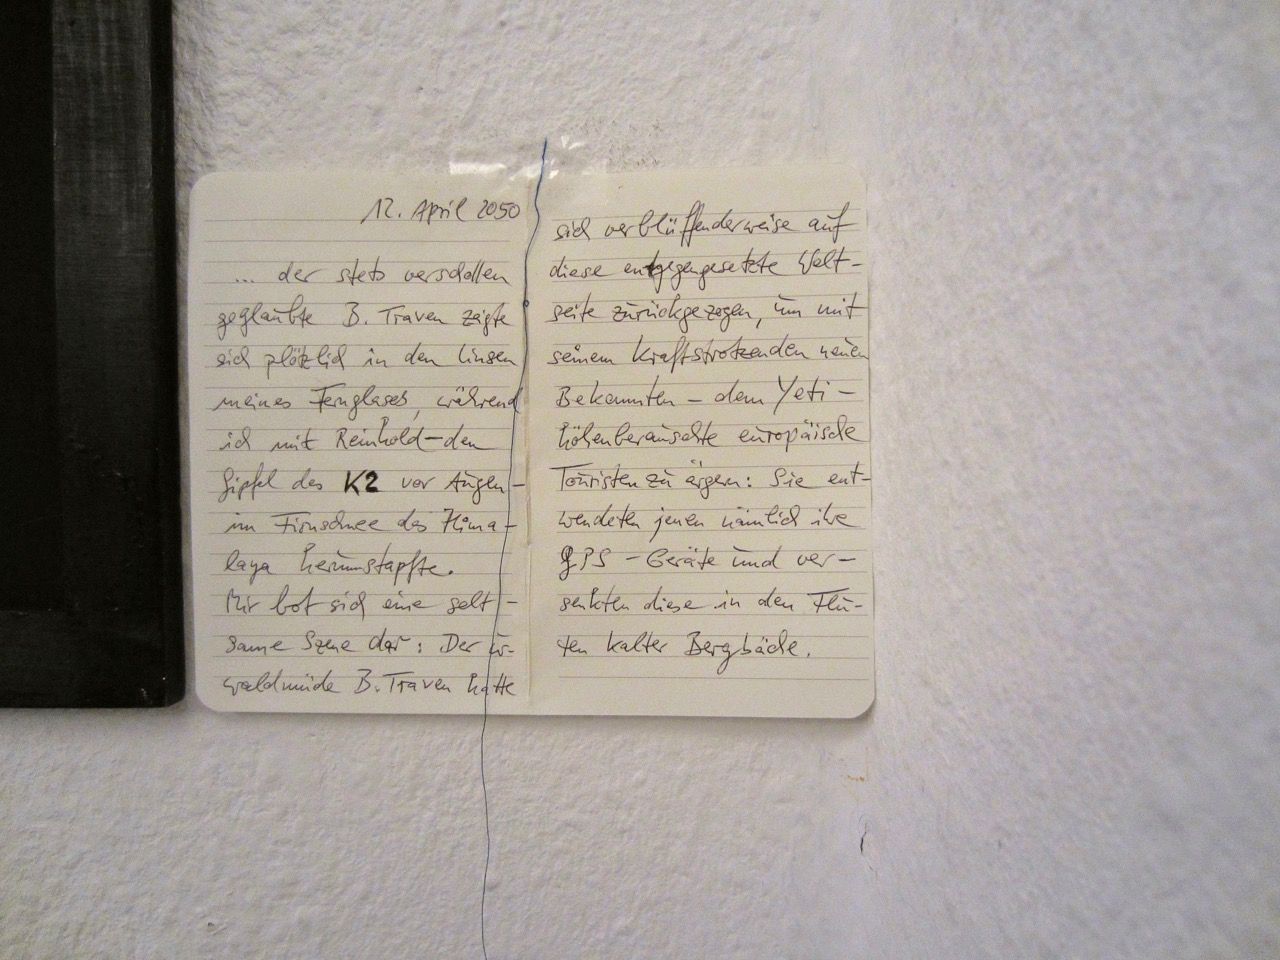 12. April 2050
... der stets verschollen
geglaubte B. Traven zeigte
sich plötzlich in den Linsen
meines Fernglases, während
ich mit Reinhold – den
Gipfel des K2 vor Augen –
im Firnschnee des Hima-
laya herumstapfte.
Mir bot sich eine selt-
same Szene dar: Der ur-
waldmüde B. Traven hatte
sich verblüffenderweise auf
diese entgegengesetzte Welt-
seite zurückgezogen, um mit
seinem kraftstrotzenden neuen
Bekannten – dem Yeti –
höhenberauschte europäische
Touristen zu ärgern: Sie ent-
wendeten jenen nämlich ihre
GPS – Geräte und ver-
senkten diese in den Flu-
ten kalter Bergbäche.